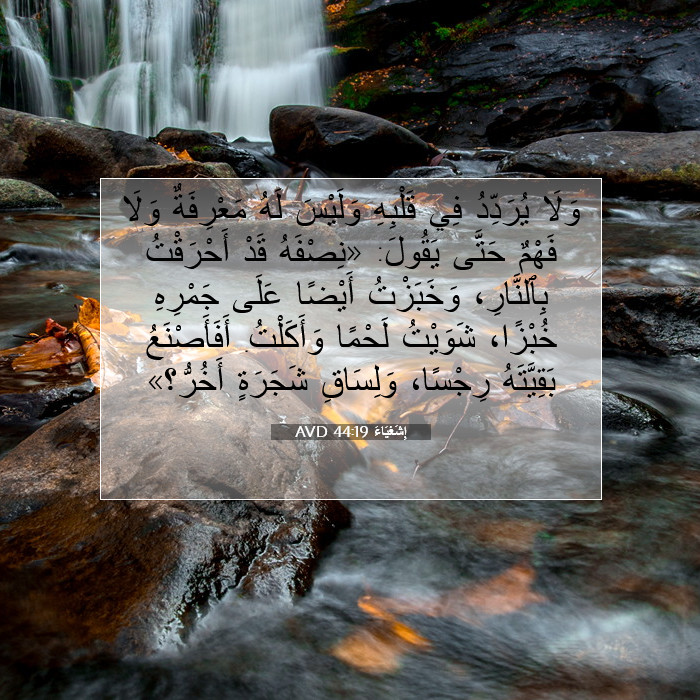 وَلَا يُرَدِّدُ فِي قَلْبِهِ وَلَيْسَ لَهُ مَعْرِفَةٌ وَلَا
فَهْمٌ حَتَّى يَقُولَ: «نِصْفَهُ قَدْ أَحْرَقْتُ
بِٱلنَّارِ، وَخَبَزْتُ أَيْضًا عَلَى جَمْرِهِ
خُبْزًا، شَوَيْتُ لَحْمًا وَأَكَلْتُ. أَفَأَصْنَعُ
بَقِيَّتَهُ رِجْسًا، وَلِسَاقِ شَجَرَةٍ أَخُرُّ؟»
إِشَعْيَاءَ 44:19 AVD